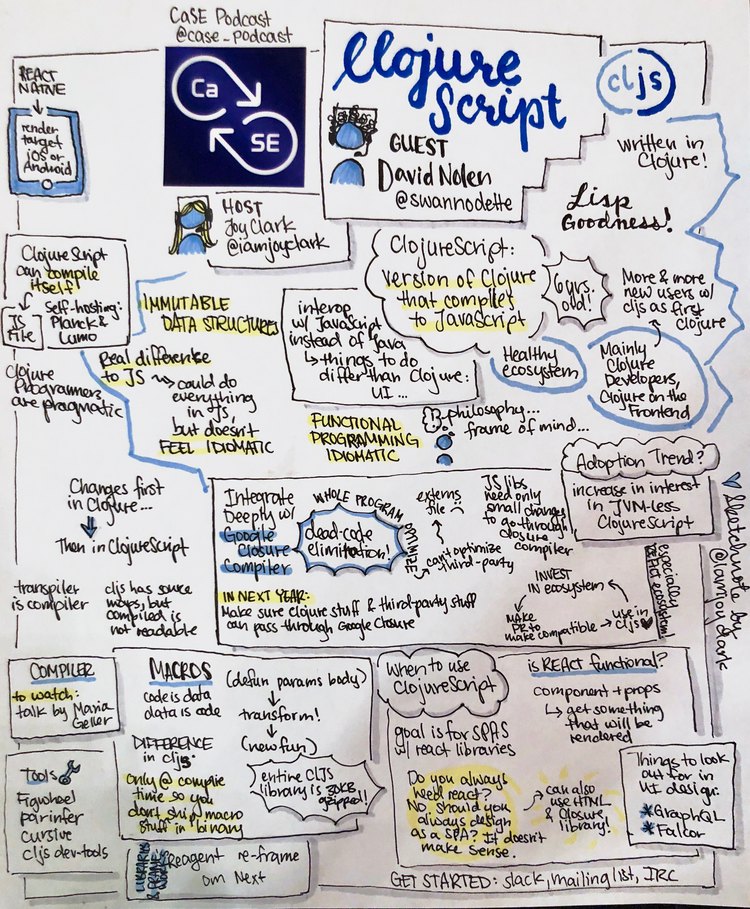 CaSE Podcast
@case_podcast
Ca
SE
Clojure
Script
GUEST
David Nolen
@swannodette
cljs
written in
Clojure!
Lisp
Goodness!
REACT
NATIVE
render
target
iOS or
Android
HOST
Joy Clark
@iamjoyclark
ClojureScript
can compile
itself
Self-hosting:
Planck &
Lumo
JS
FILE
Clojure
Programmers
are pragmatic
IMMUTABLE
DATA STRUCTURES
Real difference
to JS
could do
everything
in JS,
but doesn't
FEEL IDIOMATIC
interop
w/ JavaScript
instead of Java
things to do
differ than Clojure:
UI...
ClojureScript:
version of Clojure
that compiler
to JavaScript
6 yrs.
old!
More & more
new users w/
cljs as first
clojure
Healthy
ecosystem
Mainly
Clojure
Developers,
Clojure on the
Frontend
FUNCTIONAL
PROGRAMMING
IDIOMATIC
philosophy...
frame of mind...
Adoption Trend?
increase in interest
in JVM-less
ClojureScript
especially
REACT ecosystem
Changes first
in Clojure...
Then in ClojureScript
transpiler
is compiler
cljs has source
maps, but
compiled is
not readable
Integrate
Deeply w/
Google
Closure
Compiler
WHOLE PROGRAM
OPTIMIZE
dead-code
elimination!
externs
file
can't optimize
third-party
JS libs
need only
small changes
to go through
closure
compiler
IN NEXT YEAR:
Make sure clojure stuff & third-party stuff
can pass through Google Closure
INVEST
in ecosystem
MAKE
PR to
make compatible
use in
cljs
sketchnote by
@iamjoyclark
COMPILER
to watch:
talk by Maria
Geller
Tools
Figwheel
parinfer
cursive
cljs dev-tools
MACROS
code is data
data is code
(defun params body)
transform!
(newfun)
DIFFERENCE
in cljs:
only @ complie
time so you
don't ship macro
stuff in binary
entire CLJS
library is 30KB
gzipped!
LIBRARIES
& FRAME-
WORKS:
Reagent re-frame
om Next
When to use
ClojureScript
goal is for SPAs
w/ react libraries
Do you always
need react?
No, should you
always design
as a SPA? It doesn't
make sense.
can also
use HTML
& Closure
library!
is REACT functional?
component + props
get something
that will be
rendered
Things to look
out for in
UI design:
*GraphQL
*Falcor
GET STARTED: slack, mailing list, IRC